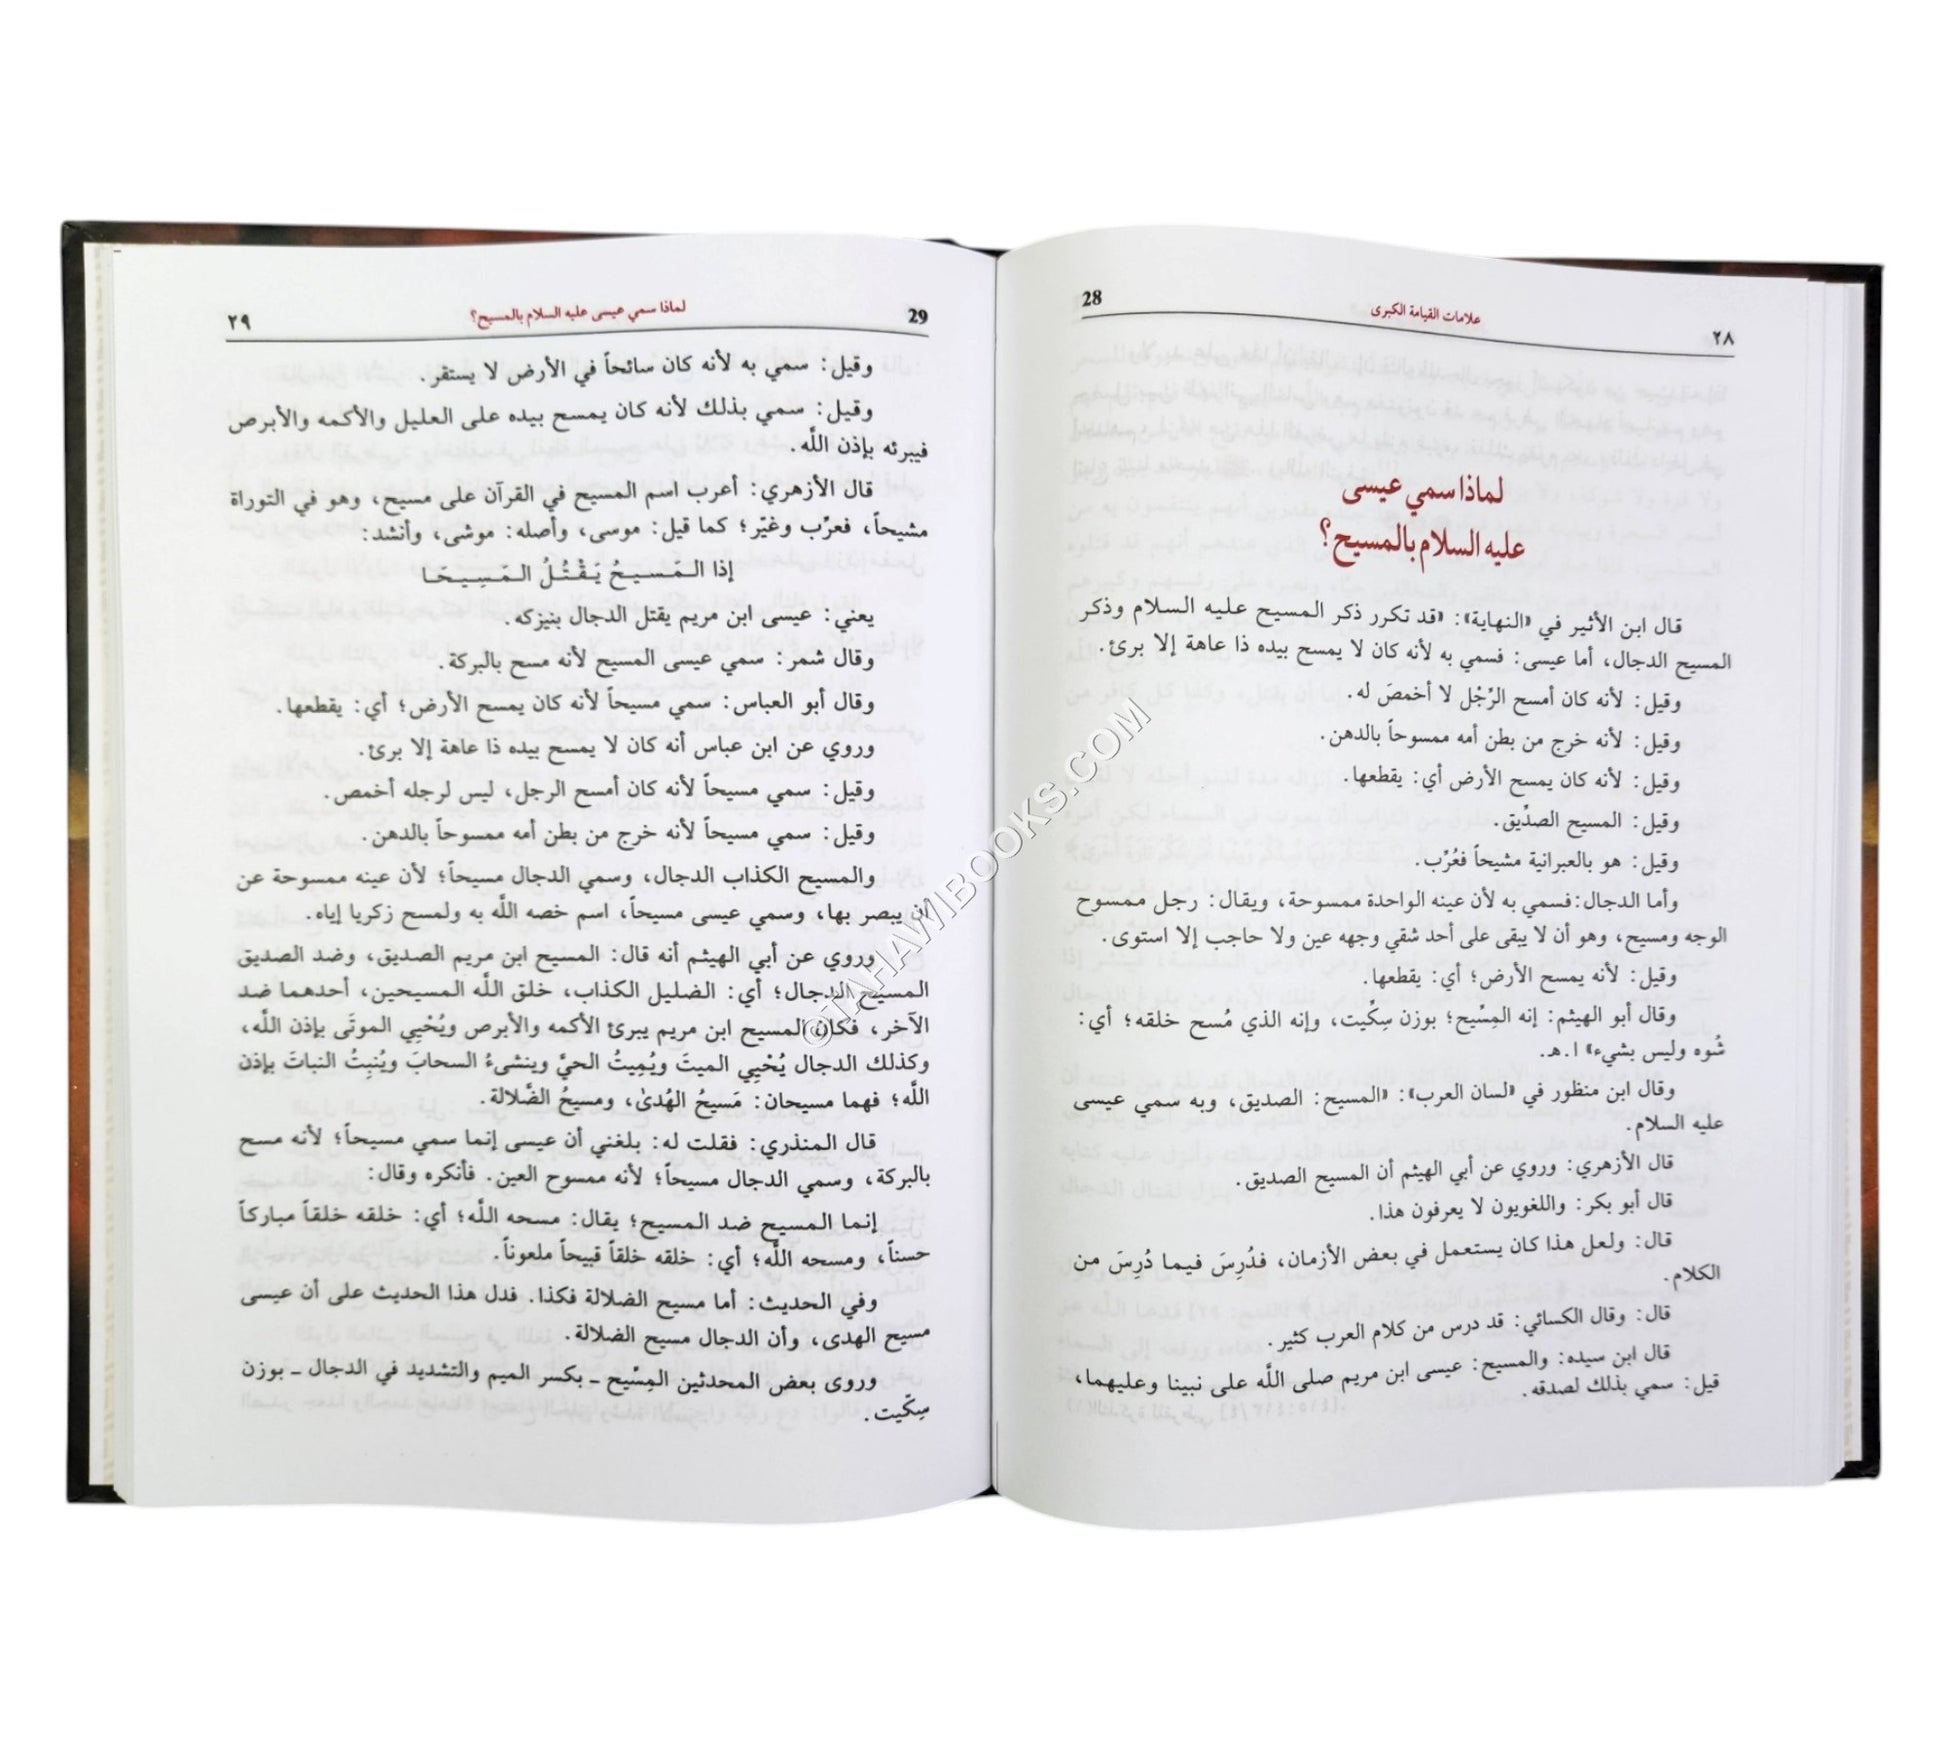 28
علامات القيامة الكبرى
٢٨
لماذا سمي عيسى
عليه السلام بالمسيح؟
قال ابن الأثير في «النهاية»: «قد تكرر ذكر المسيح عليه السلام وذكر
المسيح الدجال، أما عيسى: فسمي به لأنه كان لا يمسح بيده ذا عاهة إلا برئ.
وقيل: لأنه كان أمسح الرِّجْل لا أخمصَ له.
وقيل: لأنه خرج من بطن أمه ممسوحاً بالدهن.
وقيل: لأنه كان يمسح الأرض أي: يقطعها.
وقيل: المسيح الصدِّيق.
وقيل: هو بالعبرانية مشيحاً فعُرِّب.
وأما الدجال: فسمي به لأن عينه الواحدة ممسوحة، ويقال: رجل ممسوح
الوجه ومسيح، وهو أن لا يبقى على أحد شقي وجهه عين ولا حاجب إلا استوى.
وقيل: لأنه يمسح الأرض؛ أي: يقطعها.
وقال أبو الهيثم: إنه المِسِّيح؛ بوزن سِكِّيت، وإنه الذي مُسح خلقه؛ أي:
شُوه وليس بشيء» ا.هـ.
وقال ابن منظور في «لسان العرب»: «المسيح: الصديق، وبه سمي عيسى
عليه السلام.
قال الأزهري: وروي عن أبي الهيثم أن المسيح الصديق.
قال أبو بكر: واللغويون لا يعرفون هذا.
قال: ولعل هذا كان يستعمل في بعض الأزمان، فدُرِسَ فيما دُرِسَ من
الكلام.
قال: وقال الكسائي: قد درس من كلام العرب كثير.
قال ابن سيده: والمسيح: عيسى ابن مريم صلى اللَّه على نبينا وعليهما،
قيل: سمي بذلك لصدقه.
29
لماذا سمي عيسى عليه السلام بالمسيح؟
٢٩
وقيل: سمي به لأنه كان سائحاً في الأرض لا يستقر.
وقيل: سمي بذلك لأنه كان يمسح بيده على العليل والأكمه والأبرص
فيبرئه بإذن اللَّه.
قال الأزهري: أعرب اسم المسيح في القرآن على مسيح، وهو في التوراة
مشيحاً، فعرِّب وغيّر؛ كما قيل: موسى، وأصله: موشى، وأنشد:
إذا المَسيحُ يَقْتُلُ المَسِيحَا
يعني: عيسى ابن مريم يقتل الدجال بنيزكه.
وقال شمر: سمي عيسى المسيح لأنه مسح بالبركة.
وقال أبو العباس: سمي مسيحاً لأنه كان يمسح الأرض؛ أي: يقطعها.
وروي عن ابن عباس أنه كان لا يمسح بيده ذا عاهة إلا برئ.
وقيل: سمي مسيحاً لأنه كان أمسح الرجل، ليس لرجله أخمص.
وقيل: سمي مسيحاً لأنه خرج من بطن أمه ممسوحاً بالدهن.
والمسيح الكذاب الدجال، وسمي الدجال مسيحاً؛ لأن عينه ممسوحة عن
أن يبصر بها، وسمي عيسى مسيحاً، اسم خصه اللَّه به ولمسح زكريا إياه.
وروي عن أبي الهيثم أنه قال: المسيح ابن مريم الصديق، وضد الصديق
المسيح الدجال؛ أي: الضليل الكذاب، خلق اللَّه المسيحين، أحدهما ضد
الآخر، فكان المسيح ابن مريم يبرئ الأكمه والأبرص ويُحْيِي الموتَى بإذن اللَّه،
وكذلك الدجال يُحْيِي الميتَ ويُمِيتُ الحيَّ وينشىءُ السحابَ ويُنبِتُ النباتَ بإذن
اللَّه؛ فهما مسيحان: مَسيحُ الهُدىٰ، ومسيحُ الضَّلالة.
قال المنذري: فقلت له: بلغني أن عيسى إنما سمي مسيحاً؛ لأنه مسح
بالبركة، وسمي الدجال مسيحاً؛ لأنه ممسوح العين. فأنكره وقال:
إنما المسيح ضد المسيح؛ يقال: مسحه اللَّه؛ أي: خلقه خلقاً مباركاً
حسناً، ومسحه اللَّه؛ أي: خلقه خلقاً قبيحاً ملعوناً.
وفي الحديث: أما مسيح الضلالة فكذا. فدل هذا الحديث على أن عيسى
مسيح الهدى، وأن الدجال مسيح الضلالة.
وروى بعض المحدثين المِسِّيح ـ بكسر الميم والتشديد في الدجال ـ بوزن
سِكِّيت.
©TAHAWIBOOKS.COM